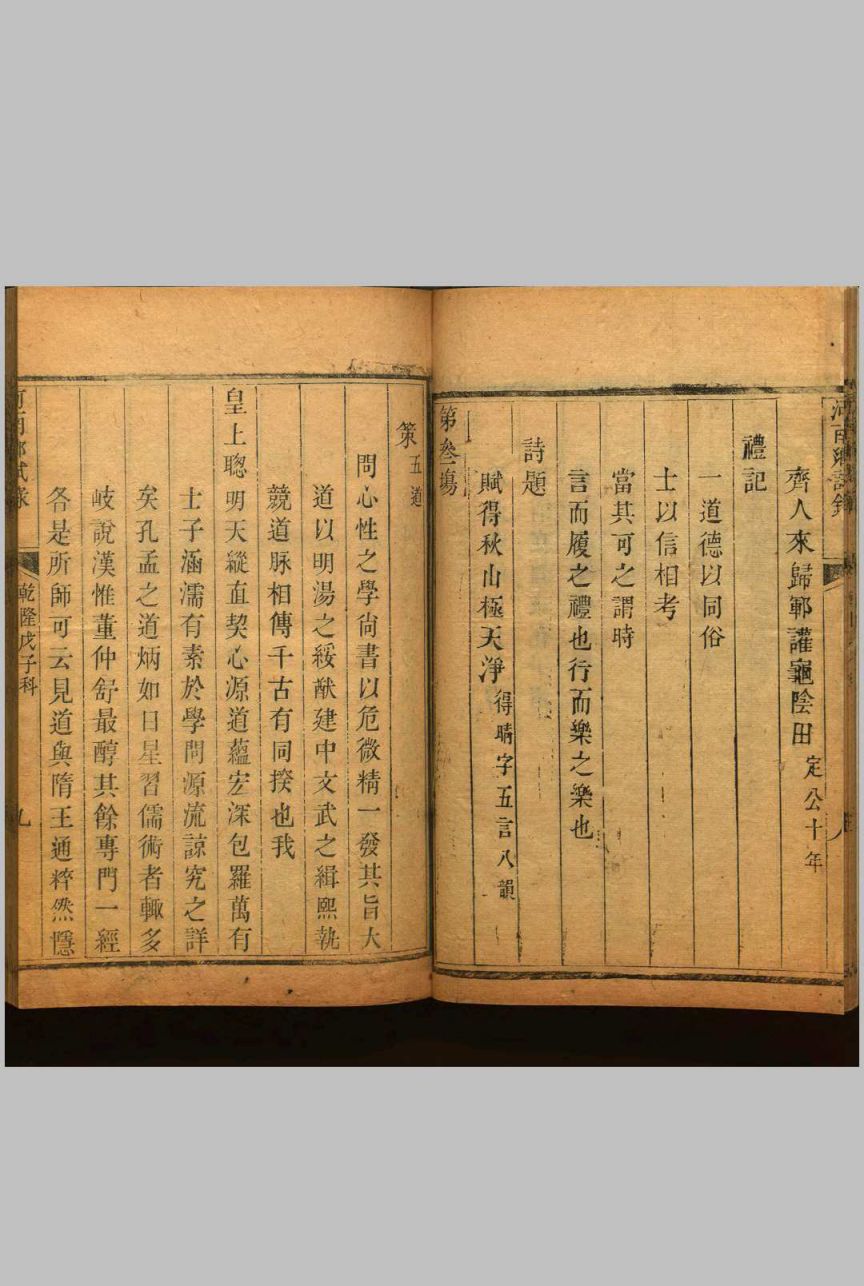 河南鄉試錄
齊人來歸鄆讙龜陰田 定公十年
禮記
一道德以同俗
士以信相考
當其可之謂時
言而履之禮也行而樂之樂也
詩題
賦得秋山極天淨 得晴字五言八韻
第叄塲
策五道
問心性之學尙書以危微精一發其旨大
道以明湯之綏猷建中文武之緝熙執
競道脉相傳千古有同揆也我
皇上聰明天縱直契心源道蘊宏深包羅萬有
士子涵濡有素於學問源流諒究之詳
矣孔孟之道炳如日星習儒術者輙多
岐說漢惟董仲舒最醇其餘專門一經
各是所師可云見道與隋王通粹然隱
河南鄉試錄
乾隆戊子科
九